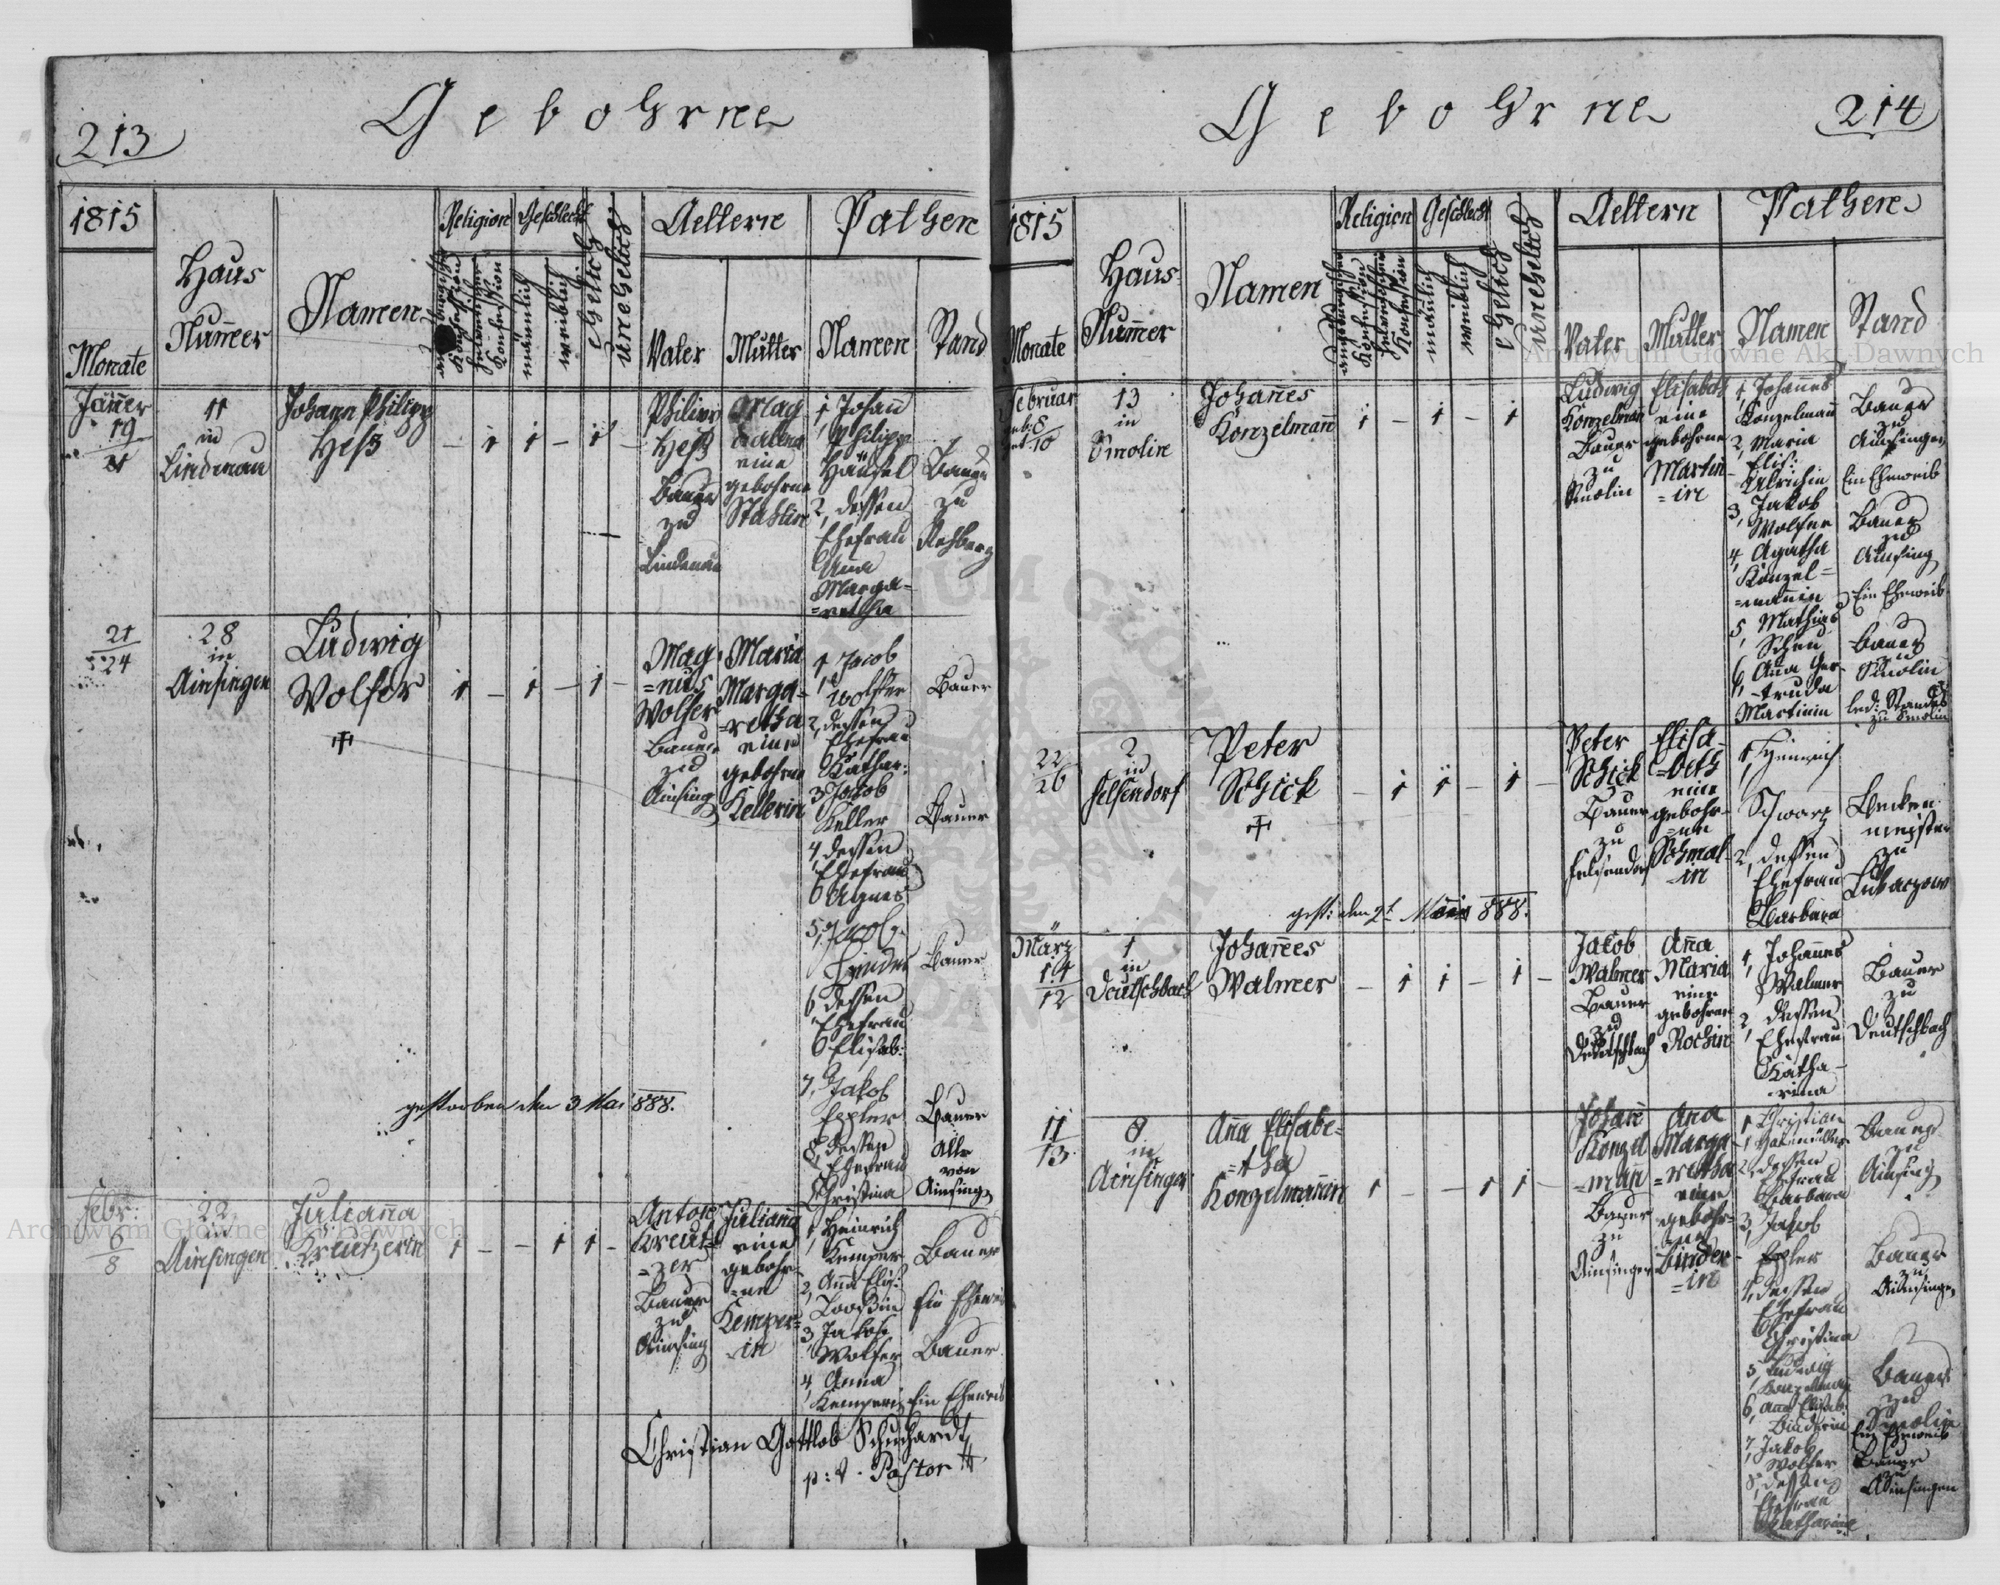 213
Gebohrne
1815
Monate
Haus
Num̅er
Namen
Religion
Geschlecht
männlich
weiblich
Ehelich
unehelich
Aeltern
Vater
Mutter
Pathen
Namen
Stand
Jäner
19
21
11
in
Lindenau
Johann Philipp
Heß
– 1 1 – 1 –
Philipp
Heß
Bauer
zu
Lindenau
Mag
dalena
eine
gebohrne
Stahlin
1, Johan̅
Philipp
Hänsel
2, dessen
Ehefrau
Anna
Marga-
=retha
Bauer
zu
Rehberg
21
24
28
in
Ainsingen
Ludwig
Wolfer
1 – 1 – 1 –
Mag-
=nus
Wolfer
Bauer
zu
Ainsing
Maria
Marga-
=retha
eine
gebohrne
Kellerin
1, Jacob
Wolfer
2, dessen
Ehefrau
Kathar:
3, Jacob
Keller
4, dessen
Ehefrau
Agnes
5, Jacob
Binder
6, dessen
Ehefrau
Elisab:
7, Jakob
Eppler
8, dessen
Ehefrau
Christina
Bauer
Bauer
Bauer
Bauer
Alle
von
Ainsing
gestorben den 3 Mai 888.
Febr:
6
8
22
in
Ainsingen
Juliana
Kreutzerin
1 – – 1 1 –
Anton
Kreut-
=zer
Bauer
zu
Ainsing
Juliana
eine
gebohr-
=ne
Kemper=
=in
1, Heinrich
Kemper
2, Anna Elis:
Looßin
3, Jakob
Wolfer
4, Anna
Kemperin
Bauer
Ein Eheweib
Bauer
Ein Eheweib
Christian Gottlob Schuchardt
p: t. Pastor
214
Gebohrne
1815
Monate
Haus-
Num̅er
Namen
Religion
Geschlecht
männlich
weiblich
Ehelich
unehelich
Aeltern
Vater
Mutter
Pathen
Namen
Stand
Februar
geb: 8
get: 10
13
in
Smolin
Johan̅es
Konzelman̅
1 – 1 – 1
Ludwig
Konzelman̅
Bauer
zu
Smolin
Elisabeth
eine
gebohrne
Martin
=in
1, Johan̅es
Konzelman̅
2, Maria
Elis:
Ulrichin
3, Jakob
Wolfer
4, Agatha
Konzel=
=manin
5, Mathias
Scheu
6, An̅a Ger-
-truda
Martinin
Bauer
zu
Ainsingen
Ein Eheweib
Bauer
zu
Ainsing
Ein Eheweib
Bauer
zu
Smolin
led: Standes
zu Smolin
22
26
2
in
Felsendorf
Peter
Schick
– 1 1 – 1 –
Peter
Schick
Bauer
zu
Felsendorf
Elisa-
=beth
eine
gebohr-
=ne
Schmal-
-in
1, Heinrich
Schwarz
2, dessen
Ehefrau
Barbara
Becken
meister
zu
Lubaczow
März
14
12
1
in
Deutschbach
Johan̅es
Walmer
– 1 1 – 1 –
Jakob
Walmer
Bauer
zu
Deutschbach
An̅a
Maria
eine
gebohrne
Rochin
1, Johan̅es
Walmer
2, dessen
Ehefrau
Katha-
-rina
Bauer
zu
Deutschbach
11
13
8
in
Ainsingen
An̅a Elisabe=
=tha
Konzelmanin
1 – – 1 1 –
Johan̅
Konzel
=man̅
Bauer
zu
Ainsingen
An̅a
Marga-
=retha
eine
gebohr=
=ne
Binder
=in
1, Christian
2, dessen
Ehefrau
Barbara
3, Jakob
Eppler
4, dessen
Ehefrau
Christina
5, Ludwig
Konzelman̅
6, Anna Elisab:
Binderin
7, Jakob
Wolfer
8, dessen
Ehefrau
Katharina
Bauer
zu
Ainsing
Bauer
zu
Ainsingen
Bauer
zu
Smolin
Ein Eheweib
Bauer
zu
Ainsingen
Archiwum Główne Akt Dawnych
Archiwum Główne Akt Dawnych